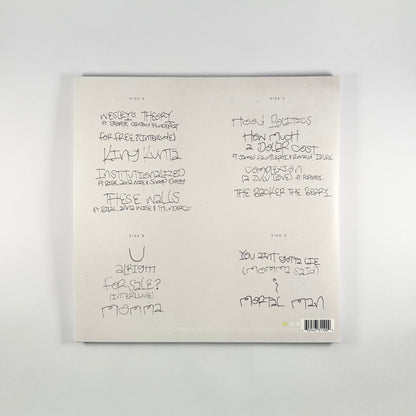 SIDE A
WESLEY'S THEORY
ft GEORGE CLINTON & THUNDERCAT
FOR FREE? (INTERLUDE)
KING KUNTA
INSTITUTIONALIZED
ft BILAL, ANNA WISE & SNOOP DOGG
THESE WALLS
ft BILAL, ANNA WISE & THUNDERCAT
SIDE B
U
alRIGHT
FOR SALE?
(INTERLUDE)
MOMMA
SIDE C
HOOD POLITICS
HOW MUCH
A DOLLAR COST
ft JAMES FAUNTLEROY & RONALD ISLEY
COMPLEXION
(A ZULU LOVE) ft RAPSODY
THE BLACKER THE BERRY
SIDE D
YOU AINT GOTTA LIE
(MOMMA SAID)
i
MORTAL MAN